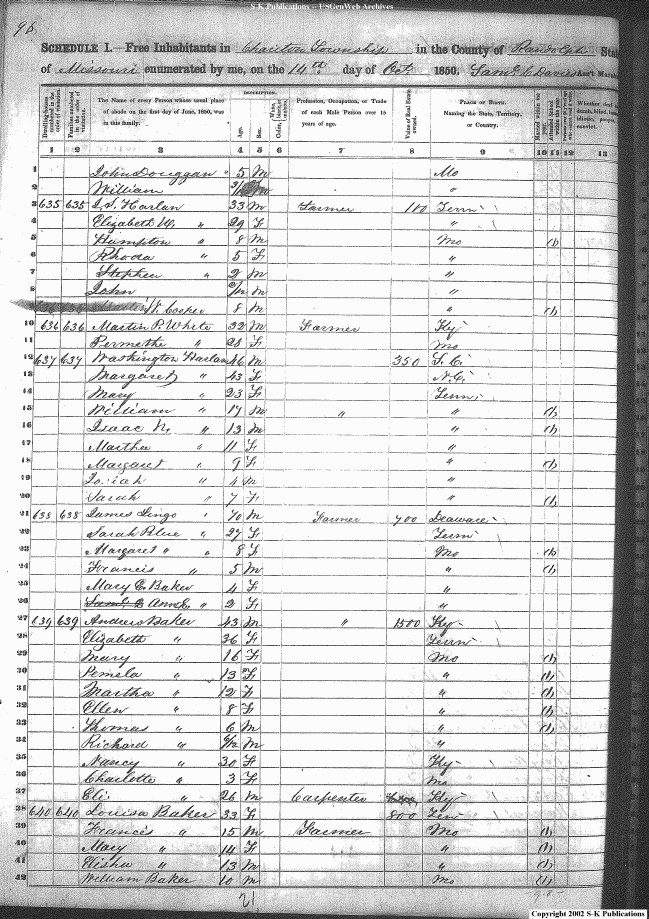 S-K Publications - USGenWeb Archives
96
SCHEDULE I.—Free Inhabitants in Chariton Township in the County of Randolph State
of Missouri enumerated by me, on the 14th day of Oct 1850. Saml C Davis Ass't Marshal
DESCRIPTION.
Dwelling-houses numbered in the order of visitation. Families numbered in the order of visitation. The Name of every Person whose usual place of abode on the first day of June, 1850, was in this family. Age. Sex. Color, Profession, Occupation, or Trade of each Male Person over 15 years of age. Value of Real Estate owned. PLACE OF BIRTH. Naming the State, Territory, or Country. Married within the year. Attended School within the year. Whether deaf
1 2 3 4 5 6 7 8 9 10 11 12 13
1 John Douggan " 5 M Mo
2 William "
3 635 635 I. S. Harlan 33 M Farmer 100 Tenn
4 Elizabeth W. " 29 F "
5 Hampton " 8 M Mo (1)
6 Rhoda " 5 F "
7 Stephen " 2 M "
8 John " M "
W. Cooker 8 M " (1)
10 636 636 Martin P. White 32 M Farmer Ky
11 Permethe " 28 F Mo
12 637 637 Washington Harlan 46 M 350 S. C.
13 Margaret " 43 F N. C.
14 Mary " 23 F Tenn
15 William " 17 M " " (1)
16 Isaac N. " 13 M " (1)
17 Martha " 11 F "
18 Margaret " 9 F " (1)
19 Josiah " 4 M "
20 Sarah " 7 F " (1)
21 638 638 James Lingo " 70 M Farmer 700 Deaware
22 Sarah Blue " 27 F Tenn
23 Margaret " " 8 F Mo (1)
24 Francis " 5 M " (1)
25 Mary E. Baker 4 F "
26 Ann E. " 2 F "
27 639 639 Andrew Baker 43 M " 1500 Ky
28 Elizabeth " 36 F Tenn
29 Mary " 16 F Mo (1)
30 Pemela " 13 F " (1)
31 Martha " 12 F " (1)
32 Ellen " 8 F " (1)
33 Thomas " 6 M " (1)
34 Richard " 6/12 M "
35 Nancy " 30 F Ky
36 Charlotte " 3 F Mo
37 Eli " 26 M Carpenter Ky
38 640 640 Louisa Baker 33 F 800 Ten
39 Francis " 15 M Farmer Mo (1)
40 Mary " 14 F " (1)
41 Elisha " 13 M " (1)
42 William Baker 10 M Mo (1)
21
Copyright 2002 S-K Publications